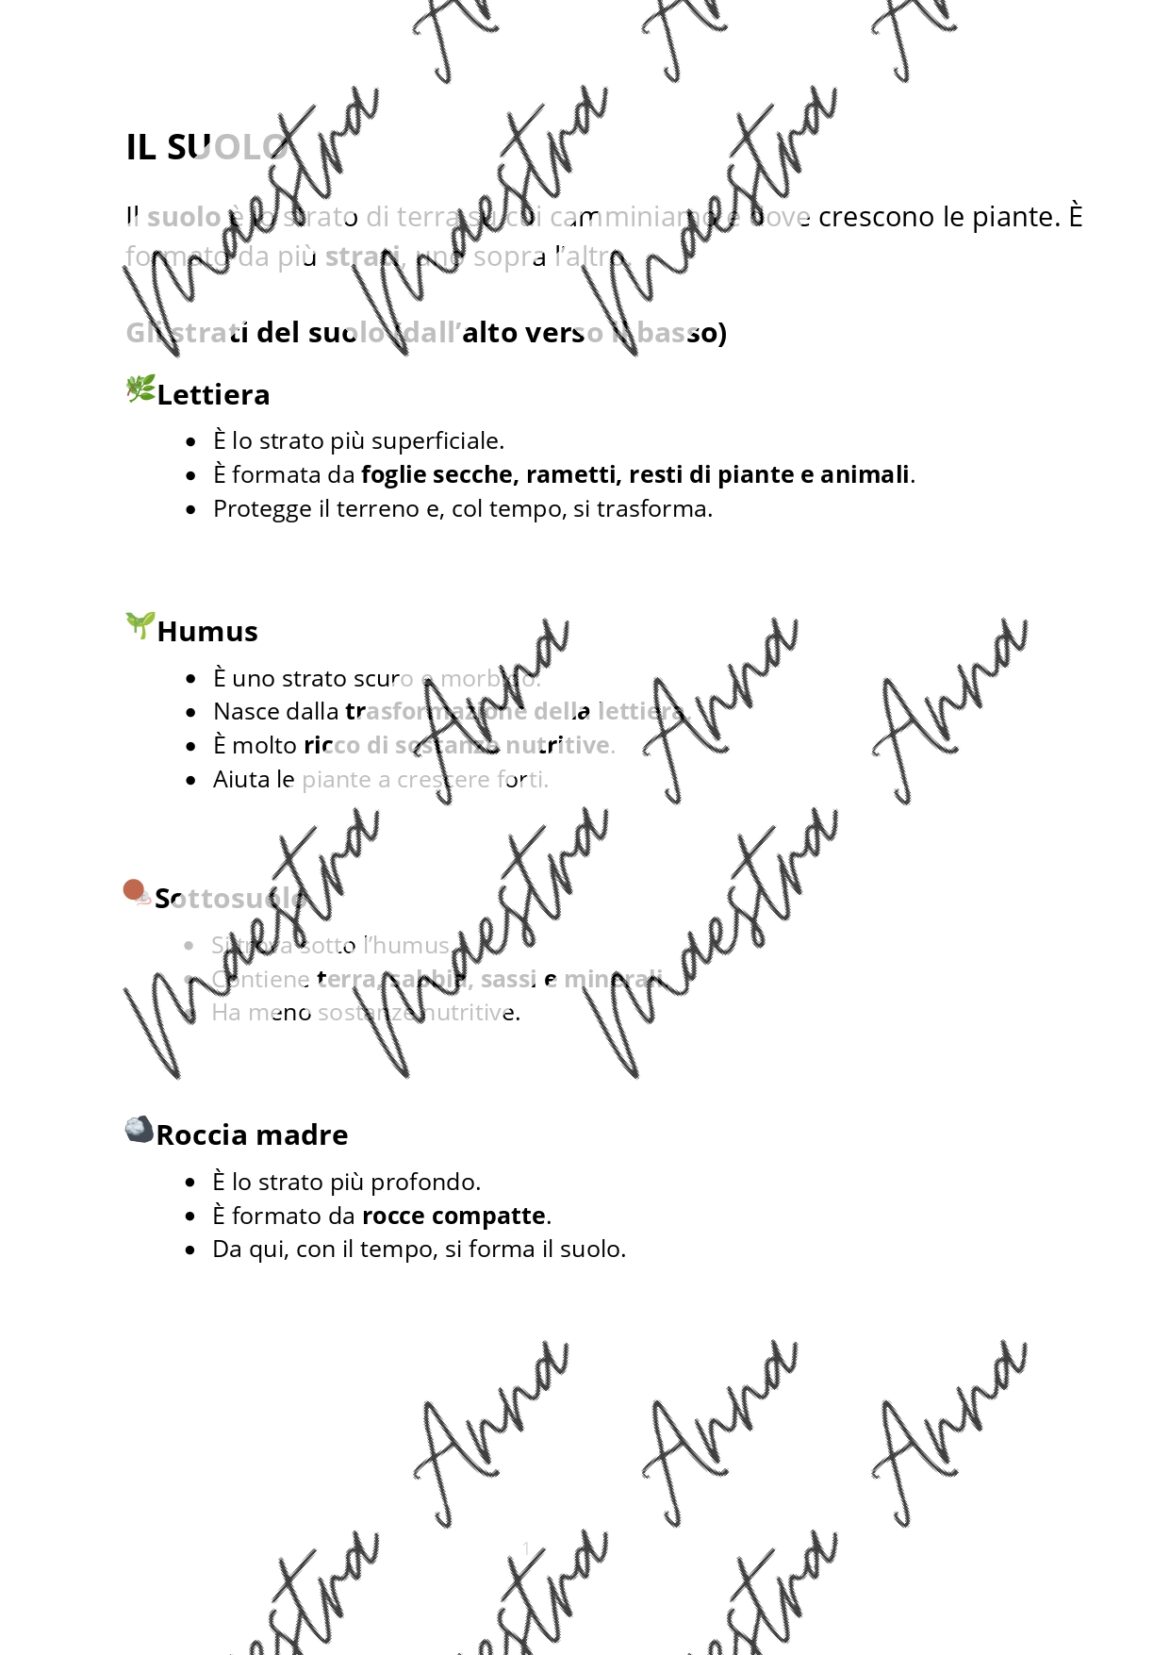 IL SUOLO
Il suolo è lo strato di terra su cui camminiamo e dove crescono le piante. È
formato da più strati, uno sopra l'altro.
Gli strati del suolo (dall'alto verso il basso)
Lettiera
• È lo strato più superficiale.
• È formata da foglie secche, rametti, resti di piante e animali.
• Protegge il terreno e, col tempo, si trasforma.
Humus
• È uno strato scuro e morbido.
• Nasce dalla trasformazione della lettiera.
• È molto ricco di sostanze nutritive.
• Aiuta le piante a crescere forti.
Sottosuolo
• Si trova sotto l'humus.
• Contiene terra, sabbia, sassi e minerali.
• Ha meno sostanze nutritive.
Roccia madre
• È lo strato più profondo.
• È formato da rocce compatte.
• Da qui, con il tempo, si forma il suolo.
1
Maestra Anna